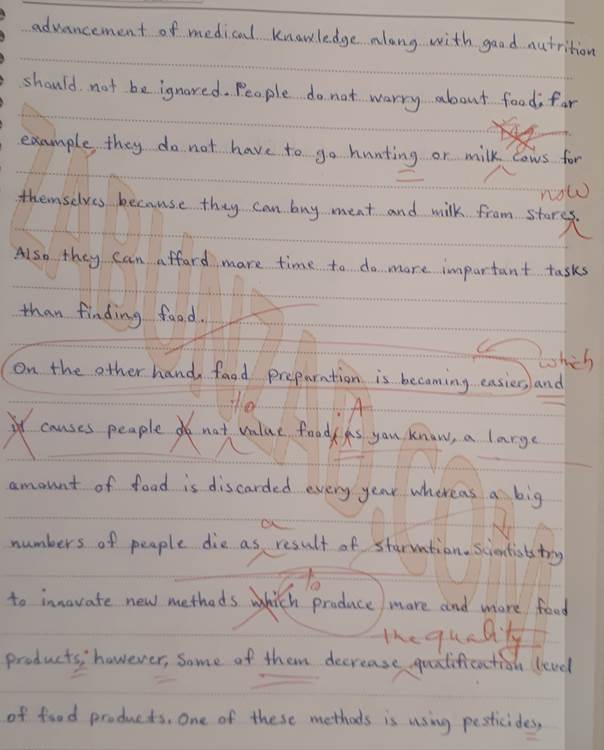 advancement of medical knowledge along with good nutrition
should not be ignored. People do not worry about food; for
example they do not have to go hunting or milk cows for
now
themselves because they can buy meat and milk from stores.
Also they can afford more time to do more important tasks
than finding food.
which
On the other hand, food preparation is becoming easier, and
to . A
it causes people do not value food, as you know, a large
amount of food is discarded every year whereas a big
a
numbers of people die as result of starvation. Scientists try
to
to innovate new methods which produce more and more food
the quality
products; however, some of them decrease qualification level
of food products. One of these methods is using pesticides,
ZABUNZAD.COM